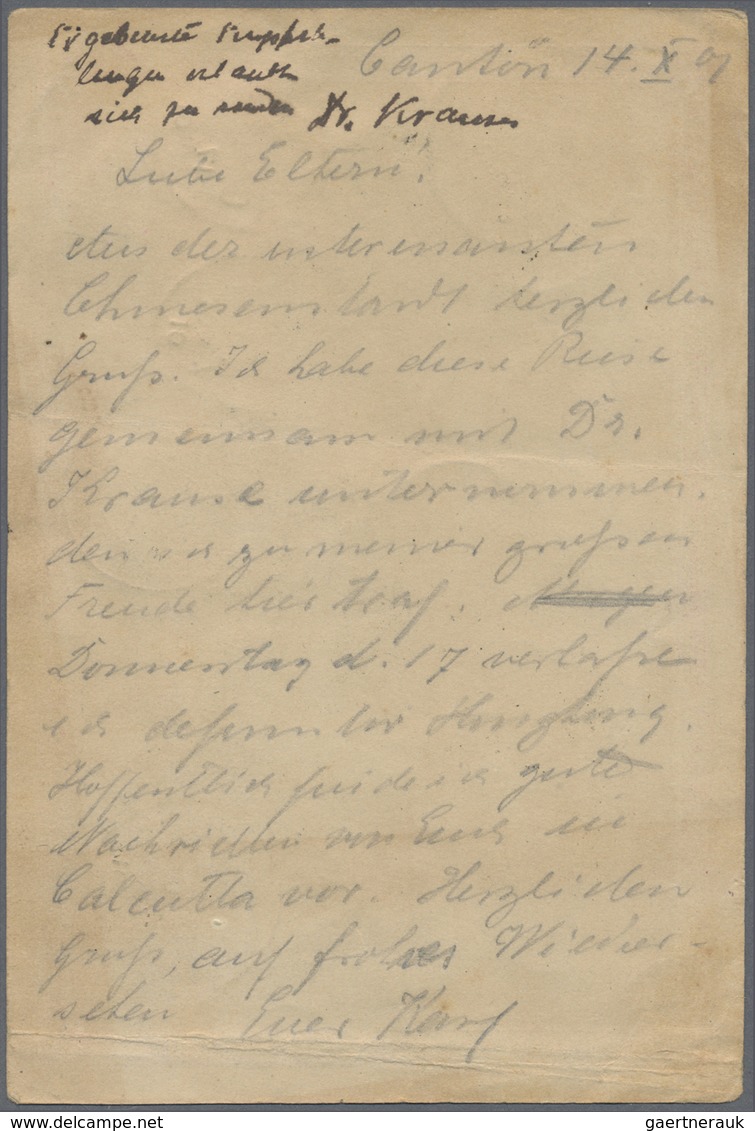 Ergebenste Empfeh-
lungen erlaubt
sich zu senden Dr. Krause
Canton 14. X 01
Liebe Eltern!
Aus der interessanten
Chinesenstadt herzlichen
Gruß. Ich habe diese Reise
gemeinsam mit Dr.
Krause unternommen,
den ich zu meiner großen
Freude hier traf. Morgen
Donnerstag d. 17 verlaße
ich definitiv Hongkong.
Hoffentlich finde ich gute
Nachrichten von Euch in
Calcutta vor. Herzlichen
Gruß, auf frohes Wieder-
sehen Euer Karl
www.delcampe.net
gaertnerauk